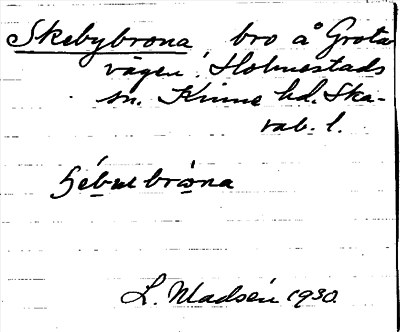 Skebybrona, bro å Grota
vägen, Holmestads
sn. Kinne hd. Ska-
rab. l.
L. Madsén 1930.